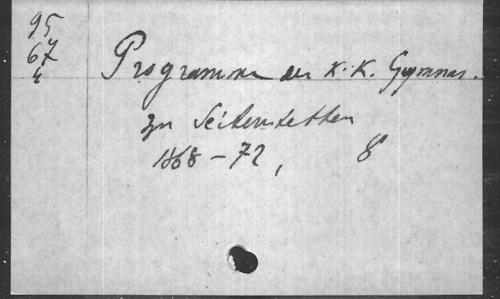 95
67
4
Programme des K. K. Gymnas.
zu Seitenstetten
1868-72, 8°